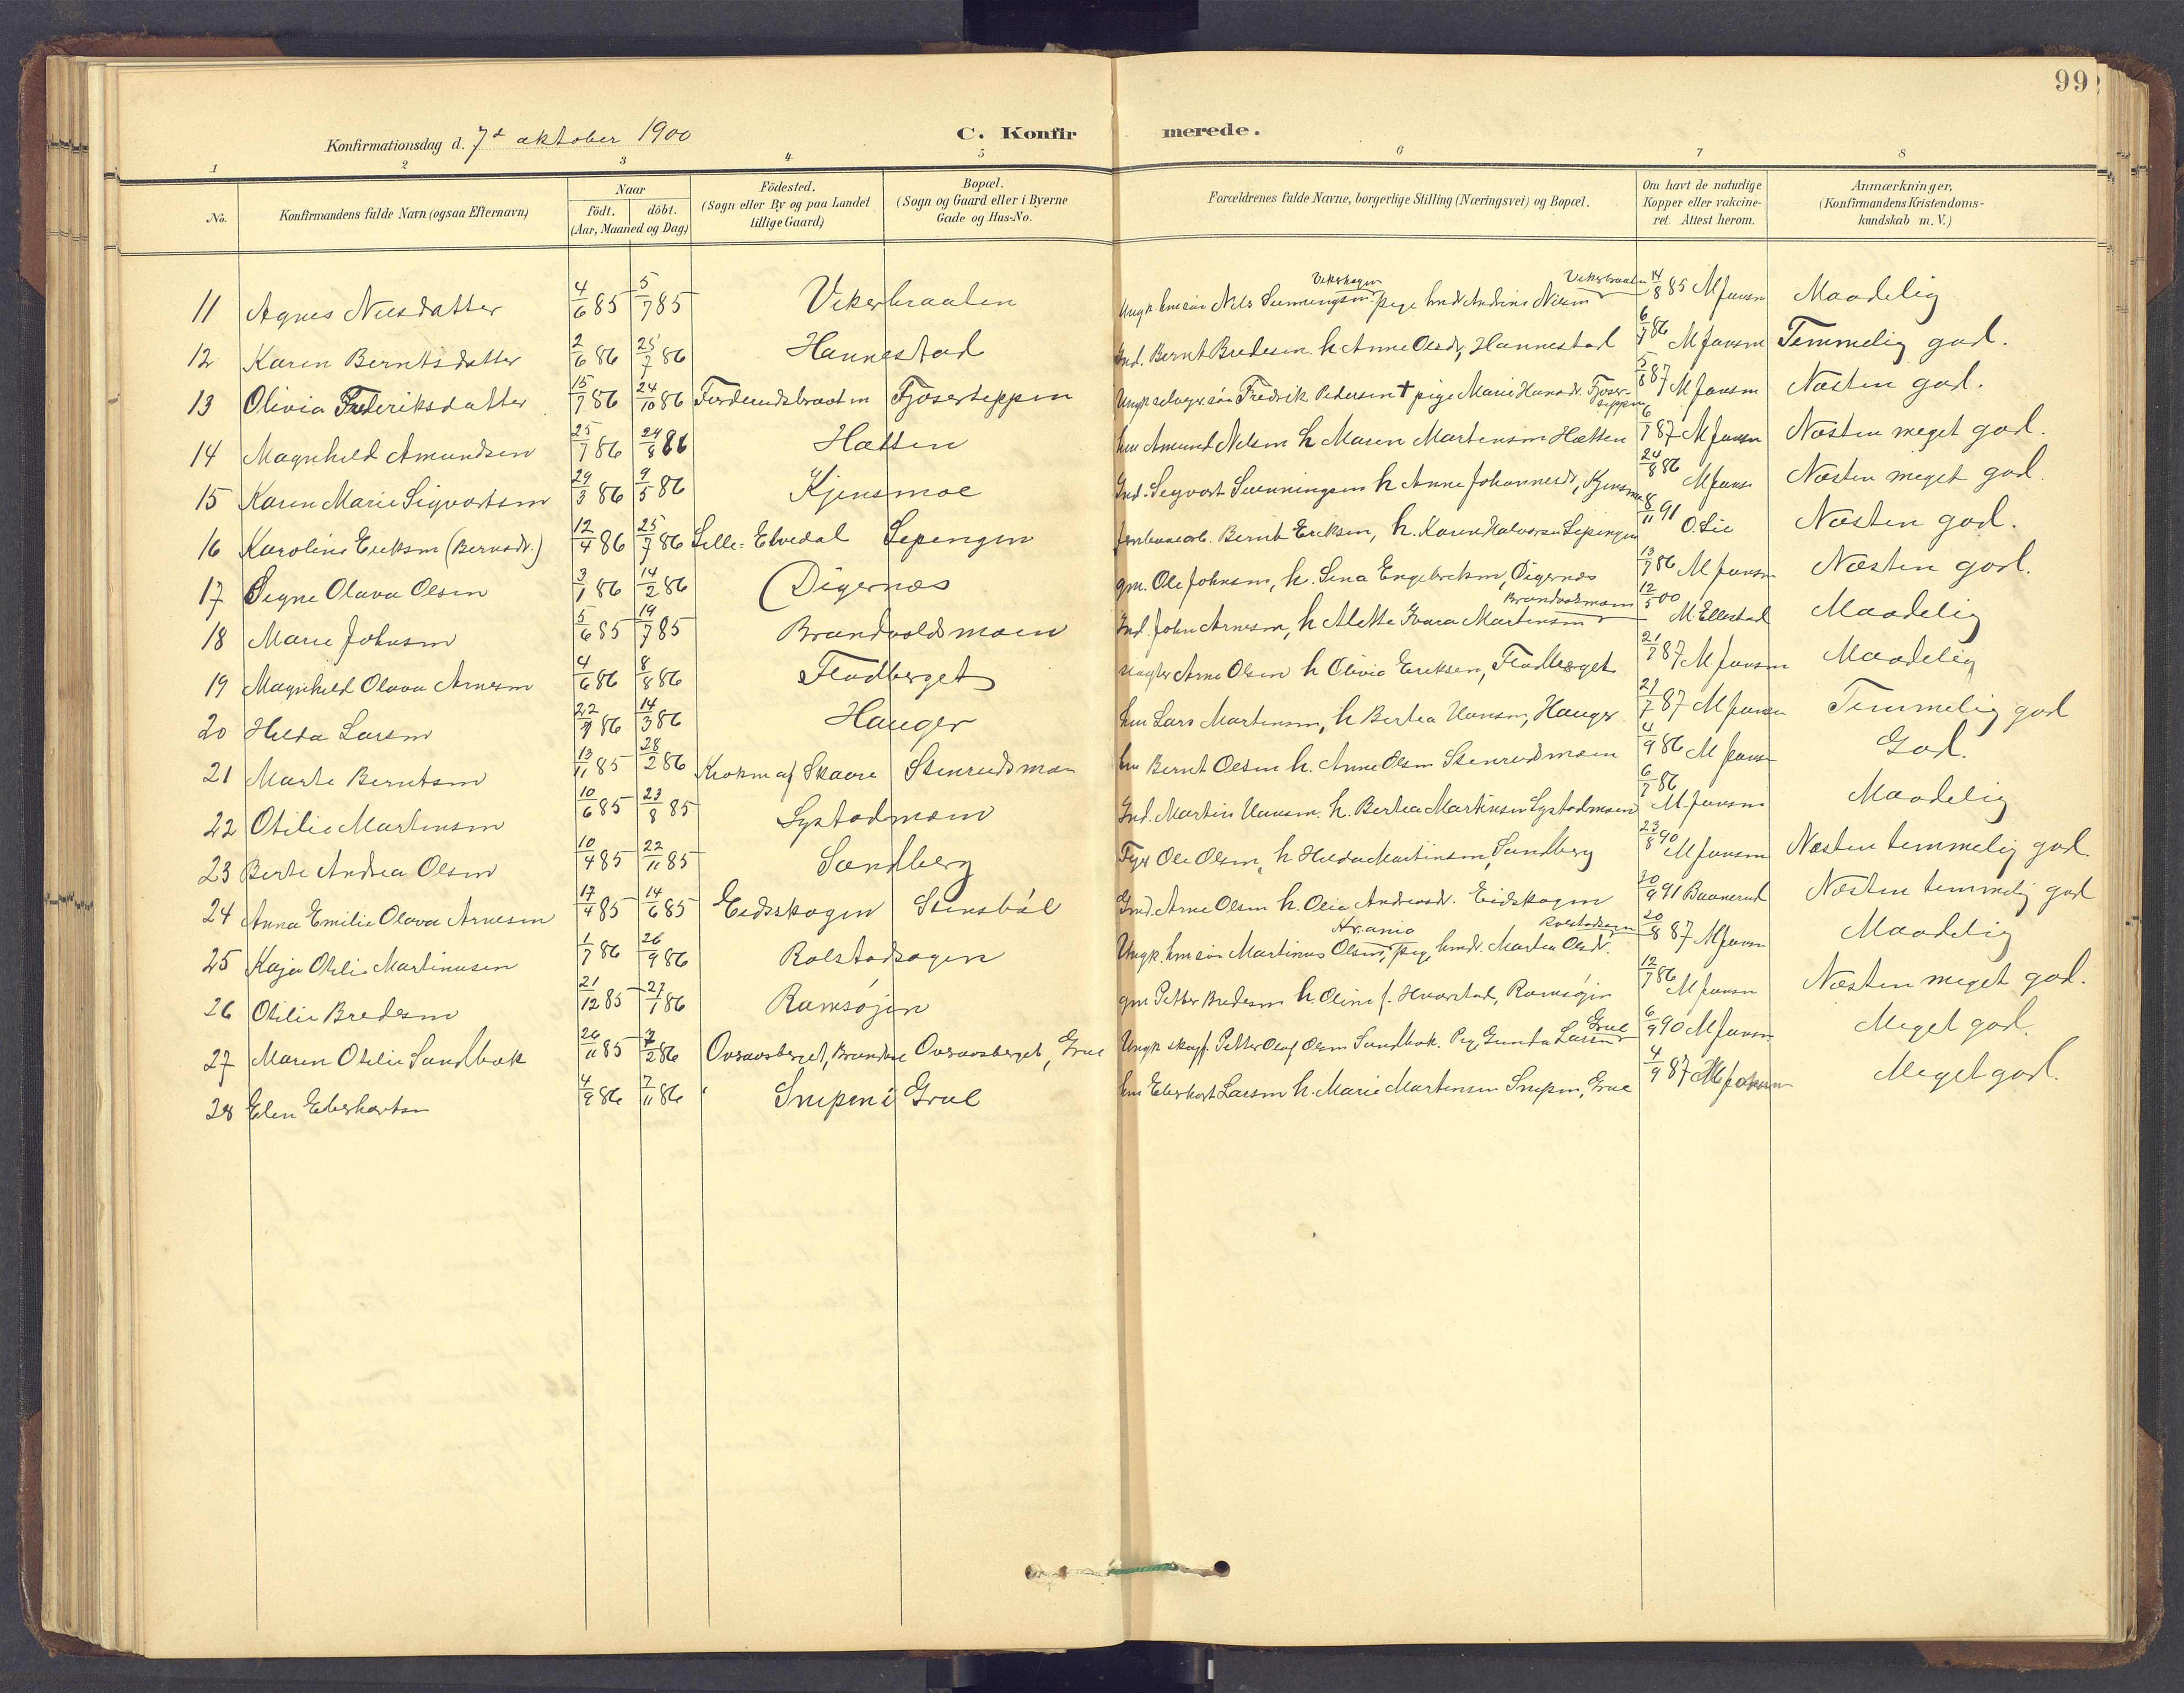 99
Konfirmationsdag d. 7d oktober 1900 C. Konfirmerede.
1 2 3 4 5 6 7 8
No. Konfirmandens fulde Navn (ogsaa Efternavn) Naar født. døbt. (Aar, Maaned og Dag) Födested. (Sogn eller By og paa Landet tillige Gaard) Bopæl. (Sogn og Gaard eller i Byerne Gade og Hus-No. Forældrenes fulde Navne, borgerlige Stilling (Næringsvei) og Bopæl. Om havt de naturlige Kopper eller vakcineret. Attest herom. Anmærkninger, (Konfirmandens Kristendomskundskab m. V.)
11 Agnes Nilsdatter 4/6 85 5/7 85 Vekerbraaten Ungk. hmsøn Nils Svenningsen Vekerhagen pige hmdr Andrine Nilsen Vekerbraaten 14/8 85 M Jansen Maadelig
12 Karen Berntsdatter 2/6 86 25/7 86 Hannestad Ind. Bernt Bredesen h Anne Olsdr, Hannestad 6/7 86 M Jansen Temmelig god.
13 Olivia Frederiksdatter 15/7 86 24/10 86 Forderudsbraaten Fjøserteppen Ungk selvejersøn Fredrik Pedersen † pige Marie Hansdr. Fjøserteppen 5/8 87 M Jansen Næsten god.
14 Magnhild Amundsen 25/7 86 24/8 86 Hætten hm Amund Nilsen h Maren Martinsen Hætten 6/7 87 M Jansen Næsten meget god.
15 Karen Marie Sigvartsen 29/3 86 9/5 86 Kjensmoe Ind. Sigvart Svenningsen h Anne Johannesdr, Kjensmoe 24/8 86 M Jansen Næsten meget god.
16 Karoline Eriksen (Bernsdr.) 12/4 86 25/7 86 Lille-Elvedal Sepengen Jernbanearb. Bernt Eriksen, h. Karen Halvorsen Sepengen 8/11 91 O Lie Næsten god.
17 Signe Olava Olsen 3/1 86 14/2 86 Digernæs gm. Ole Johnsen, h. Lina Engebretsen, Digernæs 13/7 86 M Jansen Næsten god.
18 Marie Johnsen 5/6 85 19/7 85 Brandvoldsmoen Ind. John Arnesen, h Alette Ivara Martinsen Brandvoldsmoen 12/5 00 M. Ellestad Maadelig
19 Magnhild Olava Arnesen 4/6 86 8/8 86 Fladberget slagter Arne Olsen h Olivia Eriksen, Fladberget 21/7 87 M Jansen Maadelig
20 Hilda Larsen 22/1 86 14/3 86 Hauger hm Lars Martinsen, h Bertea Hansen, Hauger 21/7 87 M Jansen Temmelig god
21 Marte Berntsen 13/11 85 28/2 86 Kroken af Skaare Stenrudsmoen hm Bernt Olsen h. Anne Olsen Stenrudsmoen 4/9 86 M Jansen God.
22 Otilie Martinsen 10/6 85 23/8 85 Lystadmoen Ind. Martin Hansen. h. Bertea Martinsen Lystadmoen 6/7 86 M. Jansen Maadelig
23 Berte Andrea Olsen 10/4 85 22/11 85 Sandberg Ole Olsen, h Hilda Martinsen, Sandberg 23/8 90 M Jansen Næsten temmelig god.
24 Anna Emilie Olava Arnesen 17/4 85 14/6 85 Eidskogen Stensbøl Ind. Arne Olsen h. Olia Andreasdr. Eidskogen 20/9 91 Baanerud Næsten temmelig god
25 Kaja Otilie Martinusen 1/7 86 26/9 86 Rolstadsagen Ungk. hmsøn Martinus Olsen, Kr.ania pige hmdr. Martea Olsdr. Rolstadsagen 20/8 87 M Jansen Maadelig
26 Otilie Bredesen 21/12 85 27/1 86 Ramsøjen gm Petter Bredesen h Oline f. Hvarstad, Ramsøjen 12/7 86 M Jansen Næsten meget god.
27 Maren Otilie Sandbæk 26/11 85 7/2 86 Ovraasberget, Brandval Ovraasberget, Grue Ungk skogf. Petter Olaf Olsen Sandbæk. Pige Gunda Larsen Grue 6/9 90 M Jansen Meget god.
28 Elen Eberhartsen 4/9 86 7/11 86 Snipen i Grue hm Eberhart Larsen h. Marie Martinsen Snipen, Grue 4/9 87 M Johnsen Meget god.